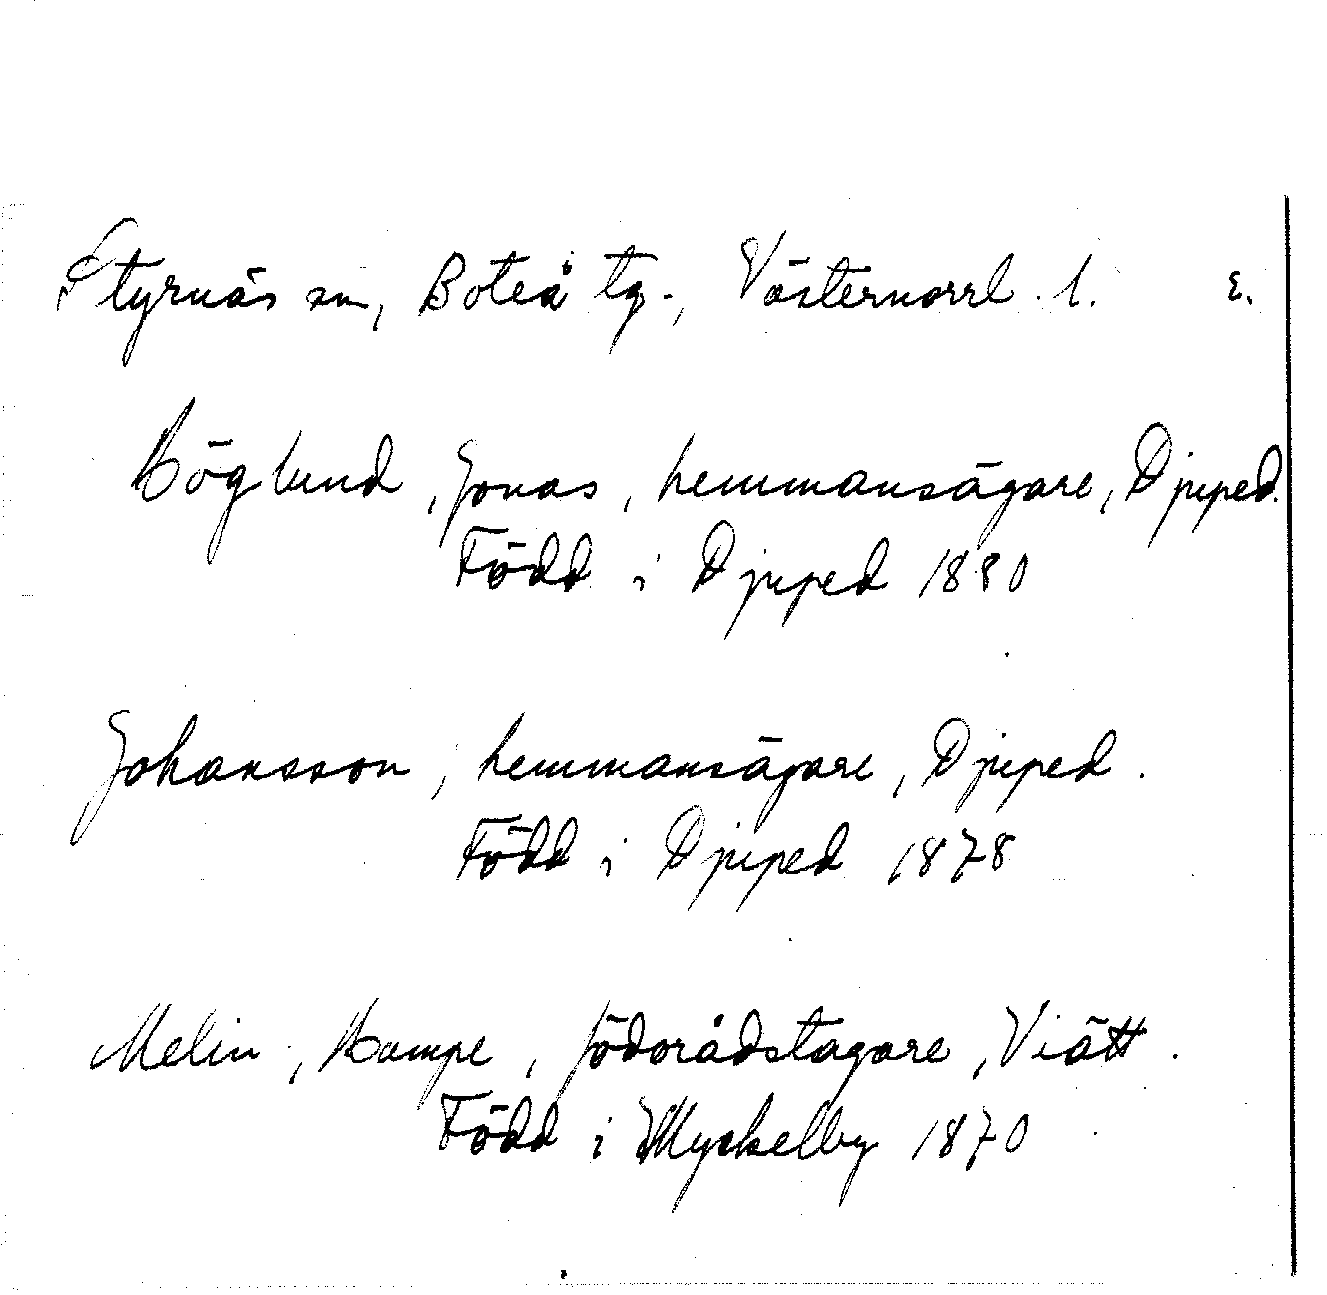 Styrnäs sn, Boteå tg., Västernorrl. l. ε.
Höglund, Jonas, hemmansägare, Djuped.
Född i Djuped 1880
Johansson, hemmansägare, Djuped.
Född i Djuped 1878
Melin, Hampe, födorådstagare, Viätt.
Född i Myckelby 1870